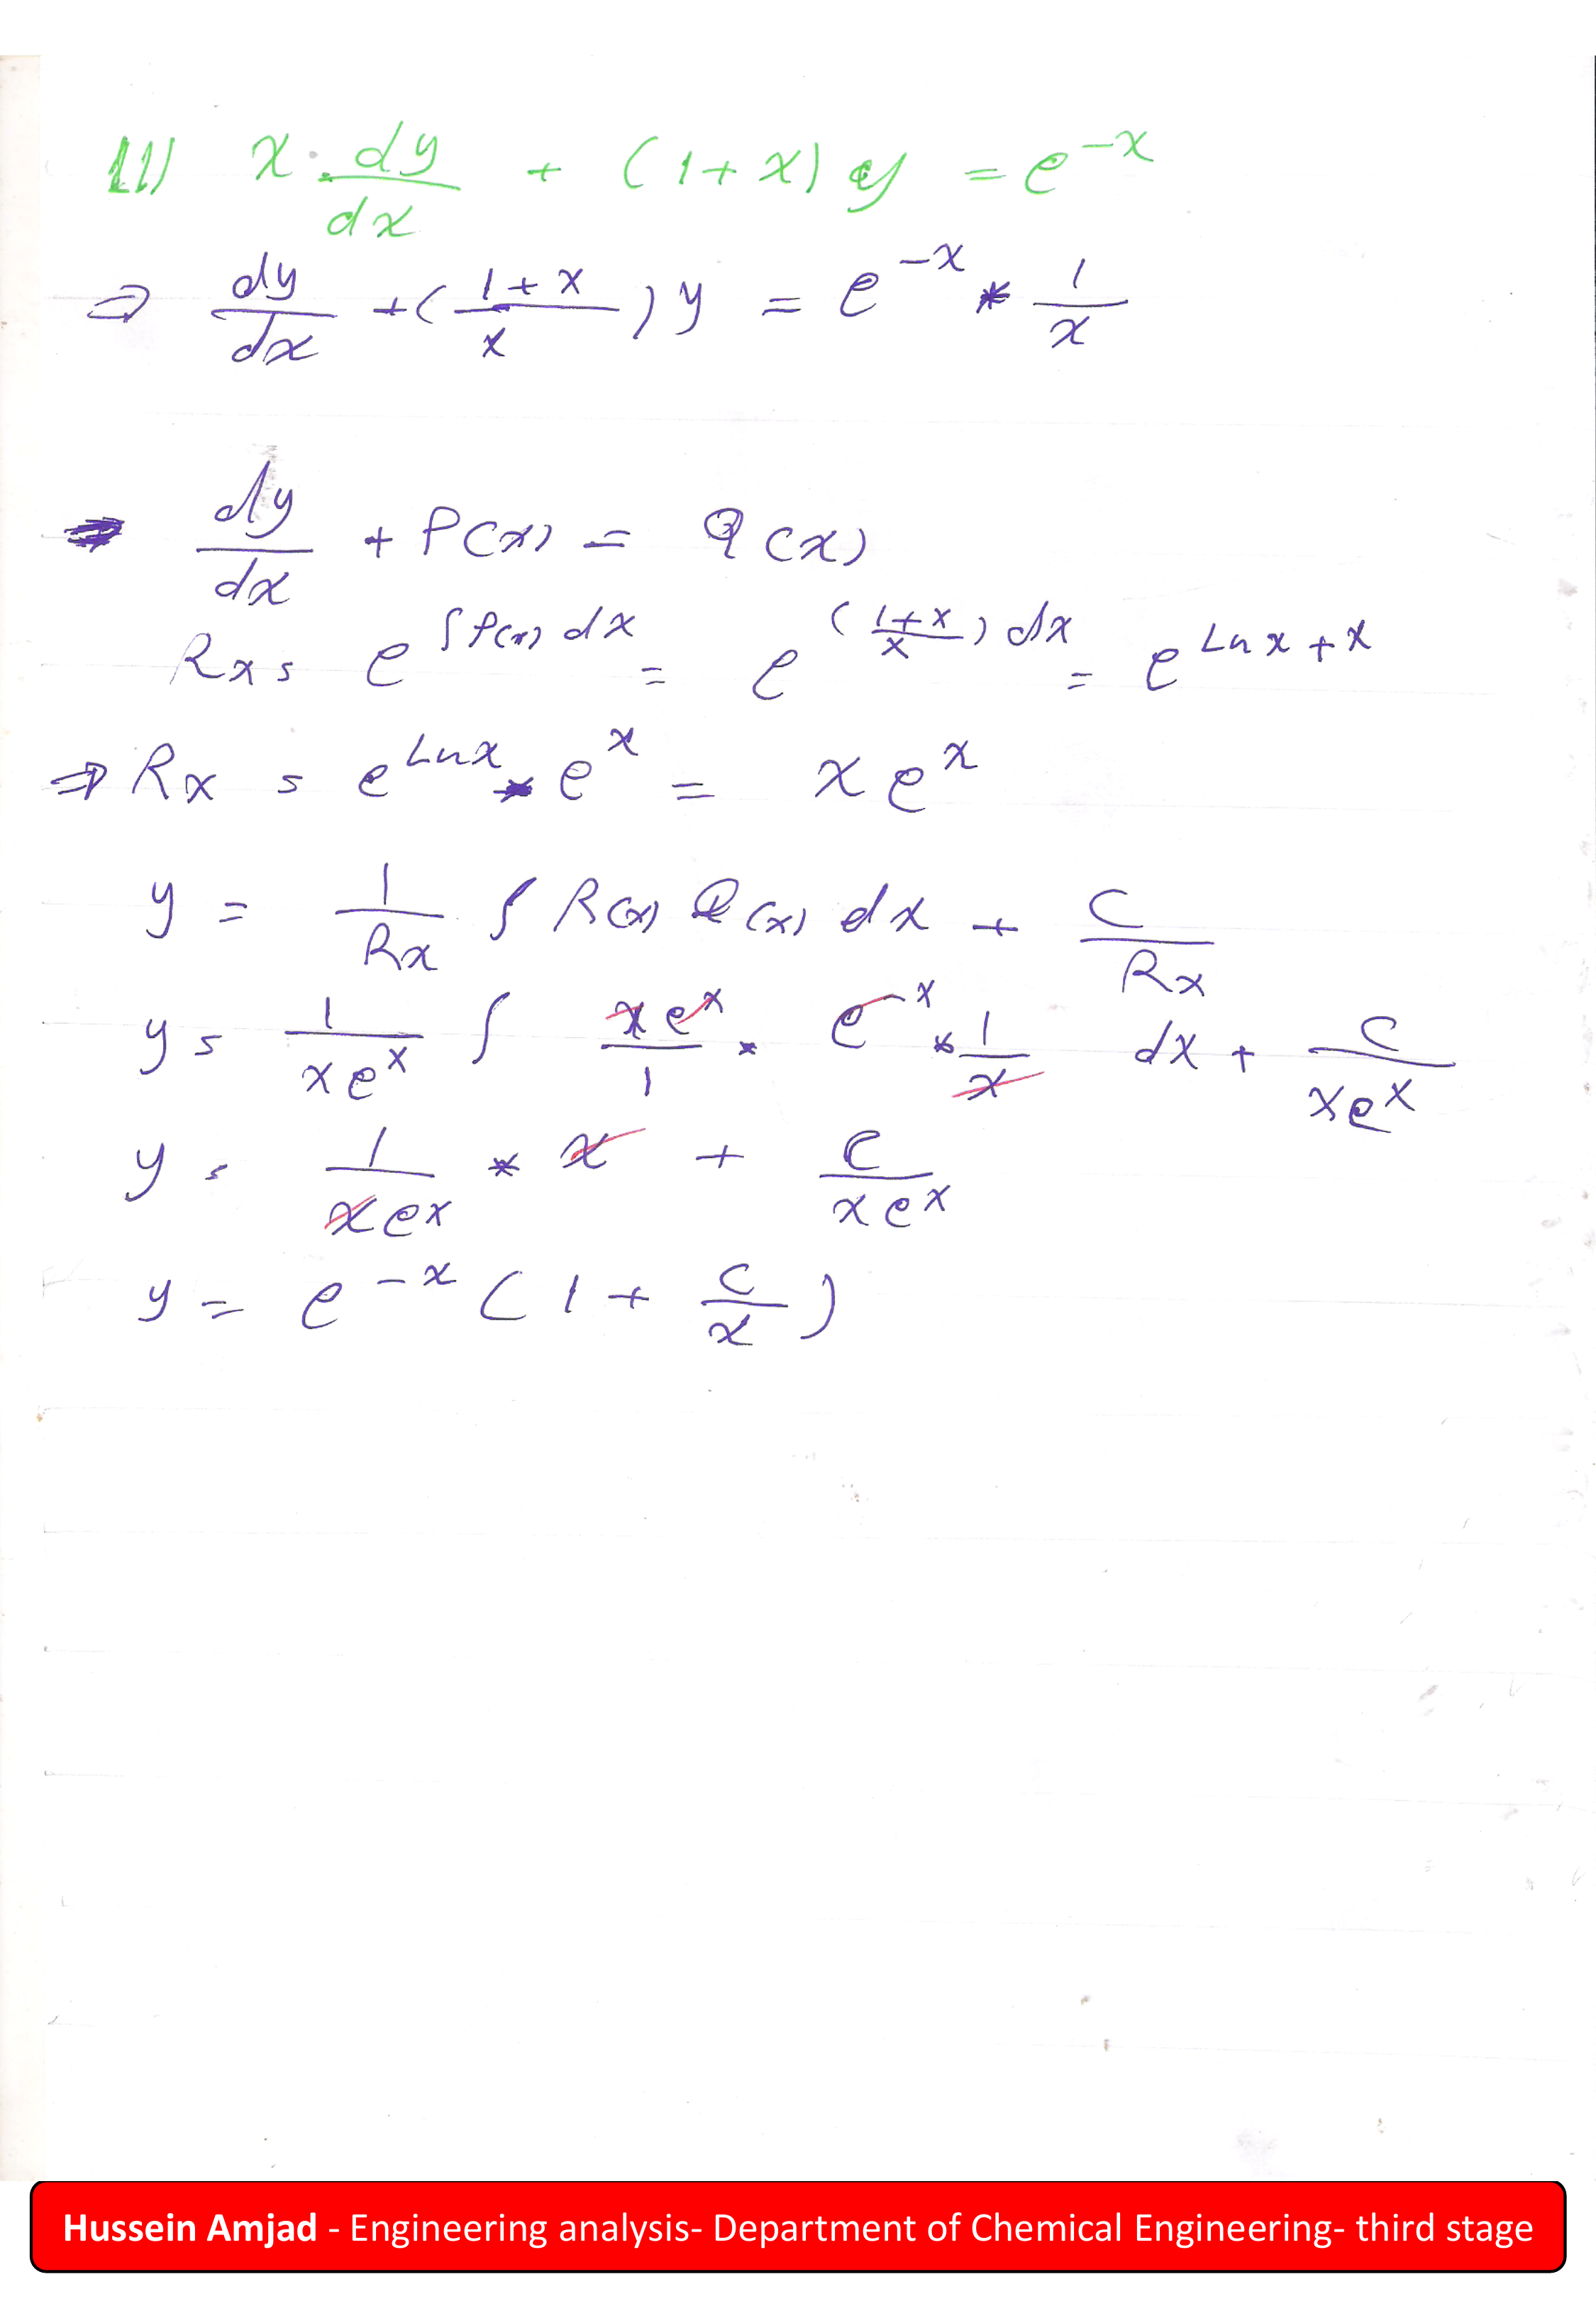 11) x · dy/dx + (1+x) y = e^-x
⇒ dy/dx + ( (1+x)/x ) y = e^-x * 1/x
dy/dx + P(x) = Q(x)
Rx = e^∫P(x) dx = e^((1+x)/x) dx = e^Ln x + x
⇒ Rx = e^Ln x * e^x = x e^x
y = 1/Rx ∫ R(x) Q(x) dx + C/Rx
y = 1/(x e^x) ∫ (x e^x)/1 * e^-x * 1/x dx + C/(x e^x)
y = 1/(x e^x) * x + C/(x e^x)
y = e^-x ( 1 + C/x )
Hussein Amjad - Engineering analysis- Department of Chemical Engineering- third stage